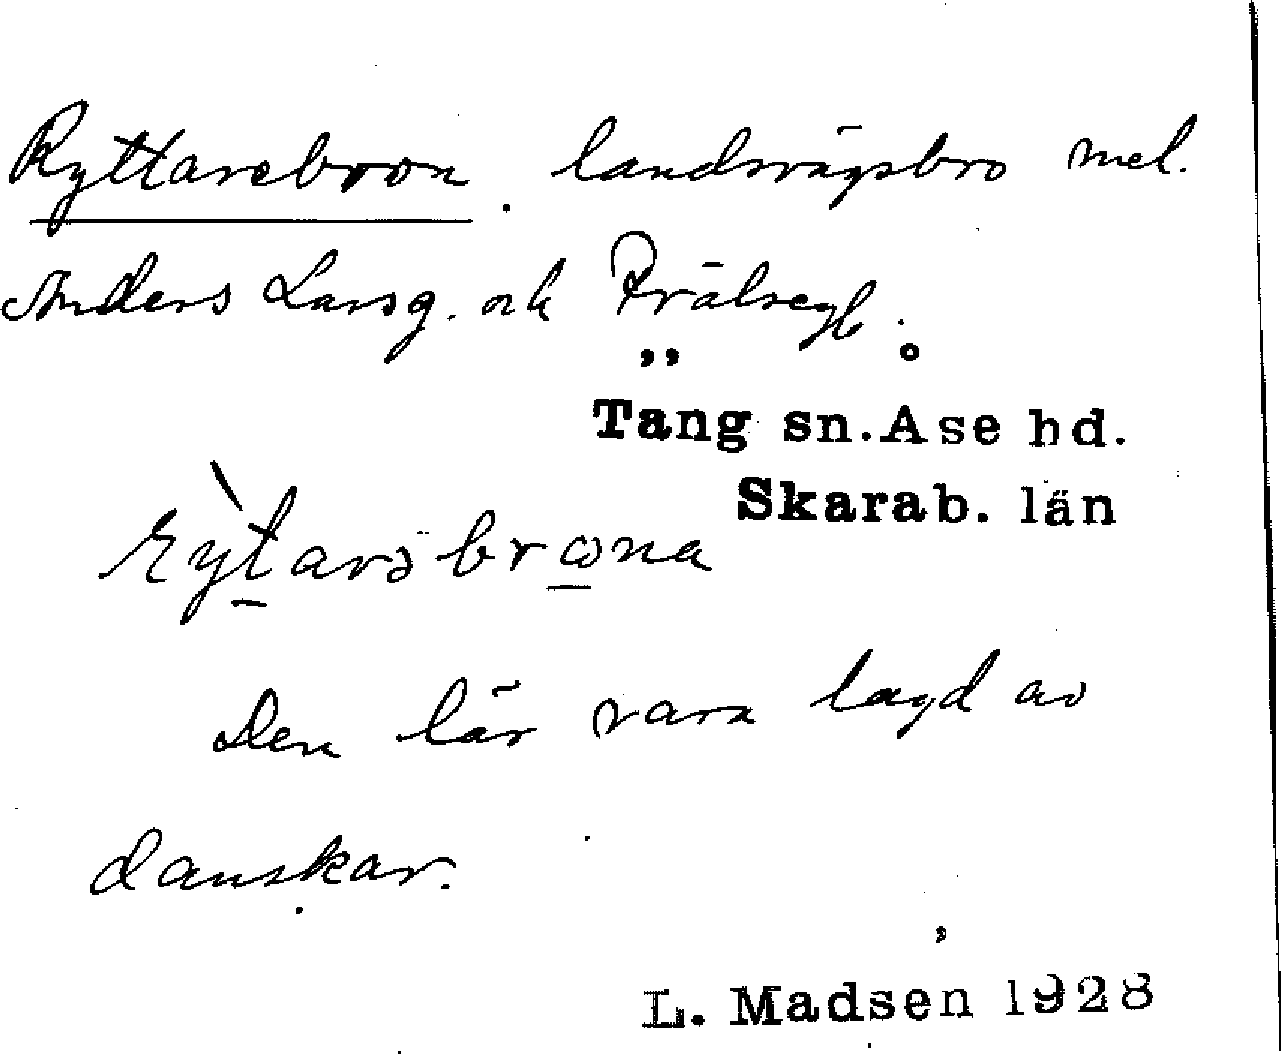 Ryttarebron. landsvägsbro mel.
Anders Larsg. och Frälsegb.
Täng sn. Åse hd.
Skarab. län
rỳtarəbrωna
Den lär vara lagd av
danskar.
L. Madsen 1928